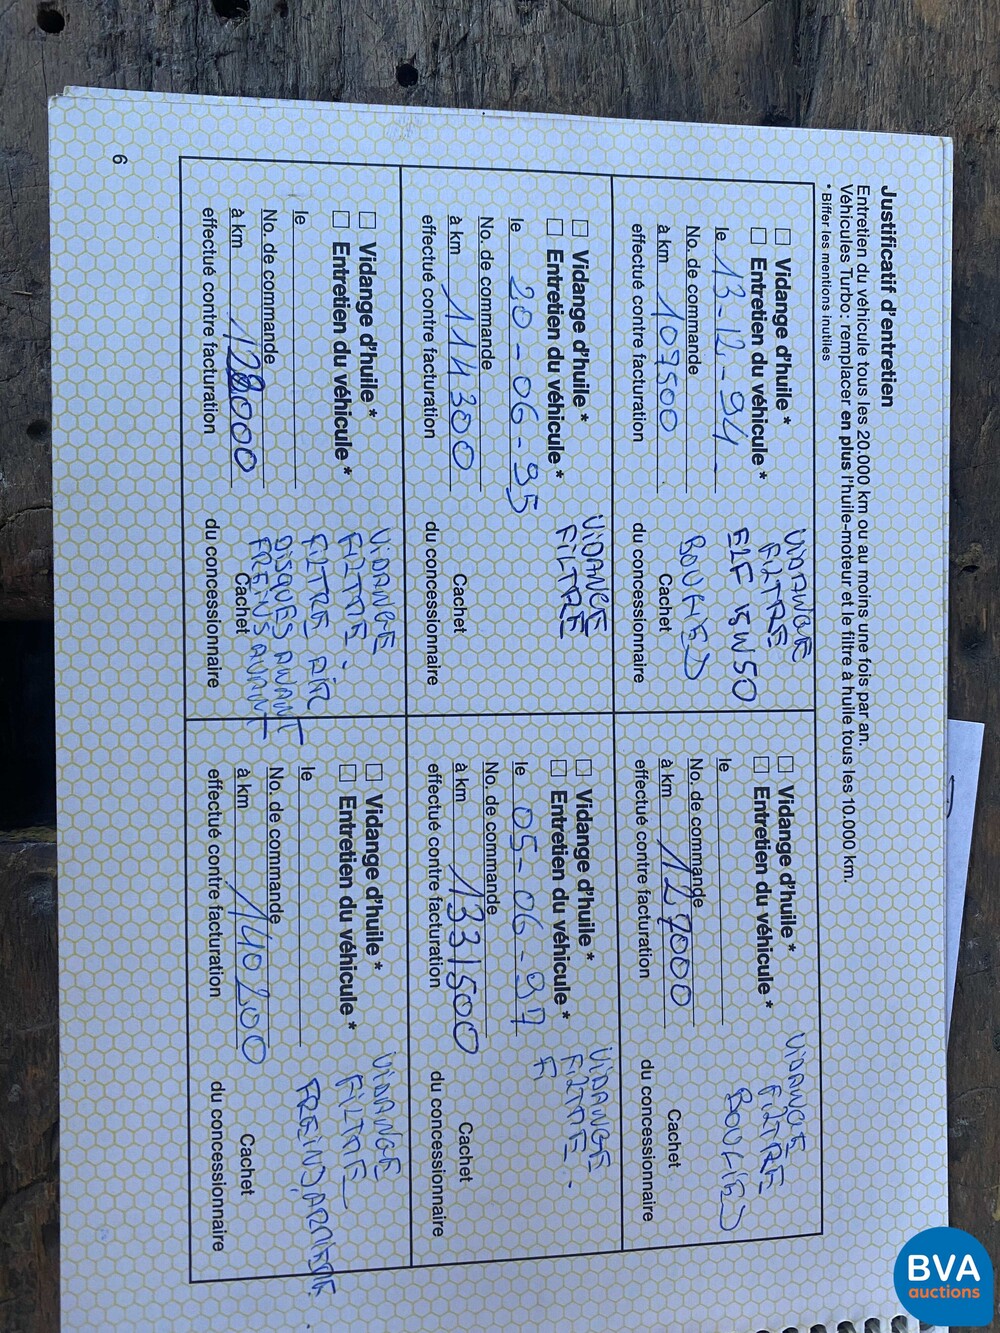 Justificatif d'entretien
Entretien du véhicule tous les 20.000 km ou au moins une fois par an.
Véhicules Turbo: remplacer en plus l'huile-moteur et le filtre à huile tous les 10.000 km.
* Biffer les mentions inutiles
Vidange d'huile *
Entretien du véhicule *
VIDANGE
FILTRE
ELF 15W50
BOUGIES
le 13-12-94
No. de commande
à km 107500
effectué contre facturation
Cachet
du concessionnaire
Vidange d'huile *
Entretien du véhicule *
VIDANGE
FILTRE
BOUGIES
le
No. de commande
à km 127000
effectué contre facturation
Cachet
du concessionnaire
Vidange d'huile *
Entretien du véhicule *
VIDANGE
FILTRE
le 20-06-95
No. de commande
à km 114300
effectué contre facturation
Cachet
du concessionnaire
Vidange d'huile *
Entretien du véhicule *
VIDANGE
FILTRE
F
le 05-06-97
No. de commande
à km 131500
effectué contre facturation
Cachet
du concessionnaire
Vidange d'huile *
Entretien du véhicule *
VIDANGE
FILTRE.
FILTRE AIR
DISQUES AVANT
FREINS AVANT
le
No. de commande
à km
effectué contre facturation
Cachet
du concessionnaire
Vidange d'huile *
Entretien du véhicule *
VIDANGE
FILTRE
FREINS ARRIERE
le
No. de commande
à km 140200
effectué contre facturation
Cachet
du concessionnaire
6
BVA
auctions